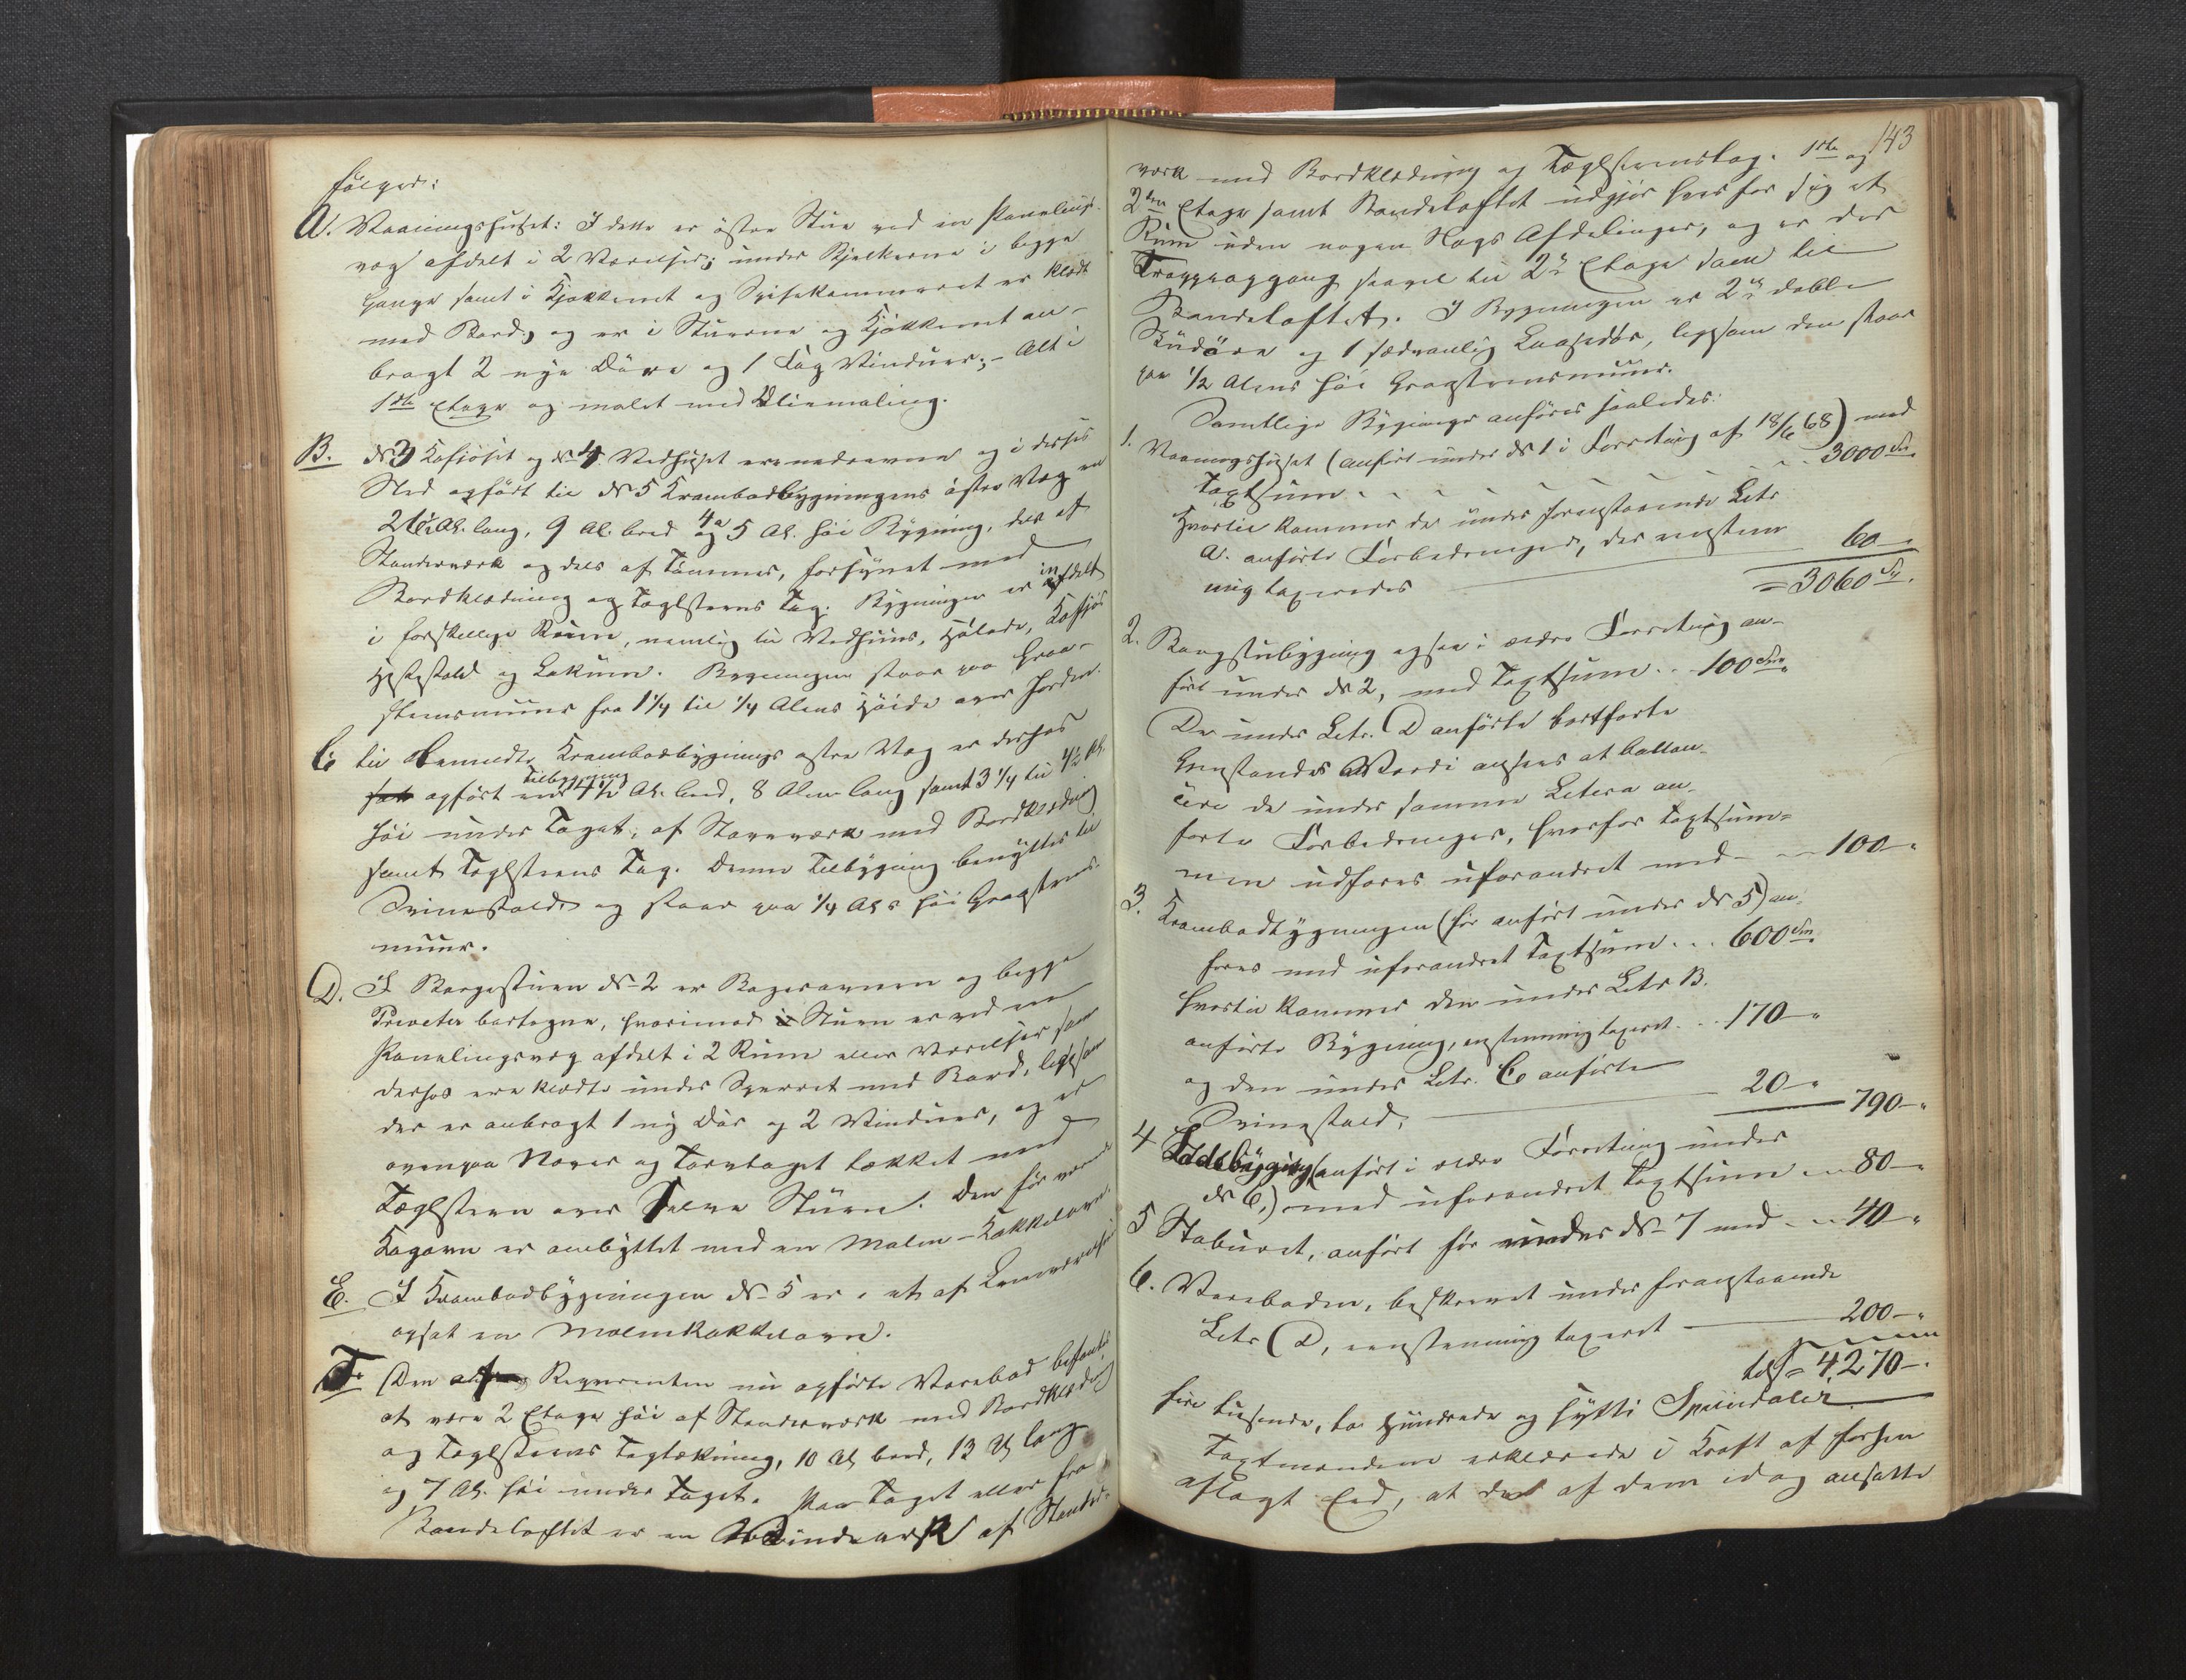 følger:
A. Vaaningshuset: I dette er østre Stue ved en Panelings-
væg afdelt i 2 Værelser; under Bjelkerne i begge
Gange samt i Kjøkkenet og Spisekammeret er klædt
med Bord, og er i Stuerne og Kjøkkenet an-
bragt 2 nye Døre og 1 Fag Vinduer; - Alt i
1ste Etage og malet med Oliemaling.
B. № 3 Kofjøset og № 4 Vedhuset ere nedrevne og i dersis
Sted opført til № 5 Krambodbygningens østre Væg en
Al. lang, 9 Al. bred 4 a 5 Al. høi Bygning, dels af
Stenderværk og dels af Tømmer, forsynet med
Bordklædning og Taglsteens Tag. Bygningen er inddelt
i forskellige Rum, nemlig til Vedhuus, Høelade, Kofjøs
Hestestald og Lokum. Bygningen staar paa Graa-
steensmuur fra 1 1/4 til 1/4 Alens Høide over Jorden.
C. til bemeldte Krambodbygnings østre Væg er derhos
opført en Tilbygning 4 1/2 Al. bred, 8 Alen lang samt 3 1/4 til 4 1/2 Al.
høi under Taget, af Stavværk med Bordklædning
samt Taglsteens Tag. Denne Tilbygning benyttes til
Svinestald og staar paa 1/4 Al. høi Graasteens-
muur.
D. I Borgestuen № 2 er Bagerovnen og begge
Priveter borttagne, hvorimod Stuen er ved en
Panelingsvæg afdelt i 2 Rum eller Værelser som
derhos ere klædte under Sperret med Bord, ligesom
der er anbragt 1 ny Dør og 2 Vinduer, og er
ovenpaa Næver og Torvtaget lækket med
Taglsteen over Selve Stuen. Den før værende
Kogovn er ombyttet med en Malm-Kakkelovn.
E. I Krambodbygningen № 5 er i et af
opsat en Malmkakkelovn.
F. Den af Reqvirenten nu opførte Varebod befantes
at være 2 Etage høi af Stenderværk med Bordklædning
og Taglsteens Taglækning, 10 Al. bred, 13 Al. lang
og 7 Al. høi under Taget. Paa Taget eller fra
Bandeloftet er en Vindeark af Stender-
143
værk med Bordklædning og Taglsteenstag. 1ste og
2den Etage samt Bandeloftet udgjør hver for sig et
Rum uden nogen Slags Afdelinger, og er der
Trappeopgang saavel til 2den Etage som til
Bandeloftet. I Bygningen er 2de doble
Budøre og 1 sædvanlig Laasedør, ligesom den staar
paa 1/2 Alens høi Graasteensmuur.
Samtlige Bygninger anføres saaledes:
1. Vaaningshuset (anført under № 1 i Forretning af 18/6 68) med
Taxtsum 3000 Sp.
Hvortil kommer de under foranstaaende Litr
A. anførte Forbedringer, der eenstem-
mig taxeredes 60 -
= 3060 Sp.
2. Borgstubygning ogsaa i ældre Forretning an-
ført under № 2, med Taxtsum 100 Spd.
De under Litr. D anførte bortførte
Gjenstandes Værdi ansees at ballan-
cere de under samme Litera an-
førte Forbedringer, hvorfor Taxtsum-
men udføres uforandret med 100 -
3. Krambodbygningen (før anført under № 5) an-
føres med uforandret Taxtsum 600 Spd.
Hvortil kommer den under Litr B.
anførte Bygning, eenstemmig taxeret 170 -
og den under Litr. C anførte
Svinestald, 20 - 790 -
4 Ladebygning (anført i ældre Forretning under
№ 6,) med uforandret Taxtsum 80 -
5 Staburet, anført før under № 7 med 40 -
6. Vareboden, beskrevet under foranstaaende
Litr D, eenstemmig taxeret 200 -
tils = 4,270 -
fire tusende, to hundrede og sytti Speciedaler
Taxtmændene erklærede i Kraft af forhen
aflagt Eed, at den af dem idag ansatte